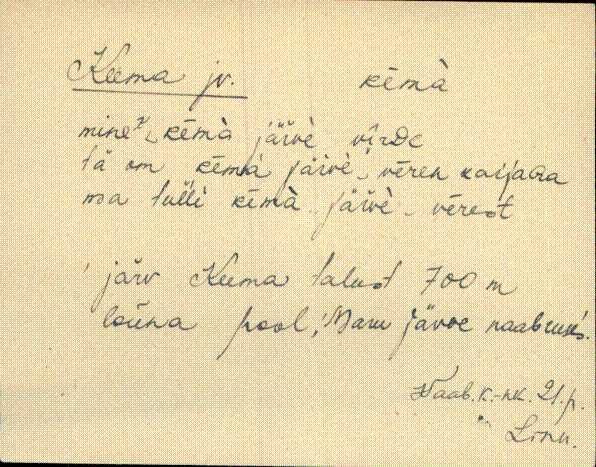 Keema jv. kēmà
mineˣ kēmà jäìvè vīrde
tä om kēmà jäìvè vēren kaijaɢa
ma tulli kēmà jäìvè vērest
järv Keema talust 700 m
lõuna pool, Maru järve naabruses.
Waab. k.-nk. 21. p.